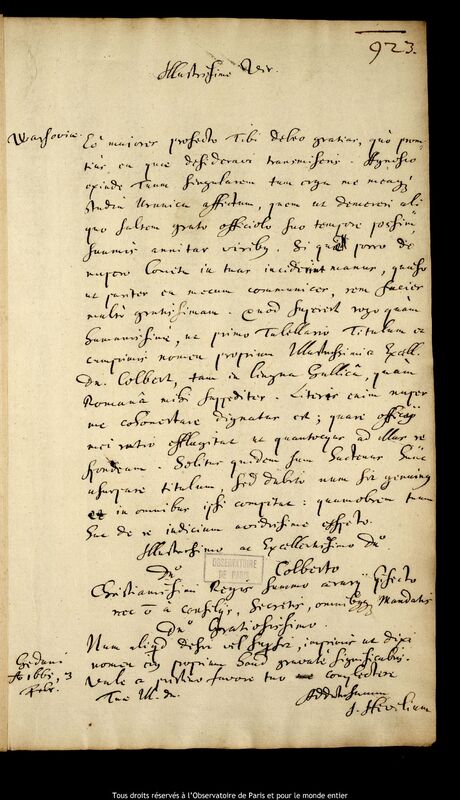 923.
Illustrissime Vir.
Warsoviæ.
Eò maiores profecto Tibi debeo gratias, quò prom-
tius ea quæ desideravi transmiseris. Agnosco
exinde Tuum singularem tum erga me meaq;
studia Uranica affectum, quem ut demereri ali
quo saltem grato officiolo suo tempore possim
summis annitar viribq. Si quæ porro de
nupero Cometa in tuas inciderint manus, quæso
ut pariter ea mecum communices, rem facies
multò gratissimam. Quod superest rogo quàm
humanissimè, ut primo Tabellario Titulum et
cumprimis nomen proprium Illustrissimi ac Excell.
Dn. Colbert, tam in lingua Gallicâ, quàm
Romanâ mihi suppedites. Literis enim nuper
me cohonestare dignatus est; quare officij
mei ratio efflagitat ut quantocyus ad illas re
spondeam. Solitus quidem sum hactenus hunc
usurpare titulum, sed dubito num sit genuinus
et in omnibus ipsi competat: quamobrem tuum
hac de re iudicium avidissime expeto.
Illustrissimo ac Excellentissimo Dno
Dno Colberto
Christianissimi Regis summo ærarij Præfecto
nec ō à Consilijs, Secretis, omnibqq Mandatis
Dno Gratiosissimo.
Num aliqd desit vel supsit, imprimis ut dixi
nomen eiq proprium haud gravatè significabis.
Vale a pristino favore tuo complectere
Tuæ Ill. dn.
Addictissimum
J. Hevelium
Gedani
Ao 1665, 3
Febr.
OBSERVATOIRE
DE PARIS
Tous droits réservés à l'Observatoire de Paris et pour le monde entier